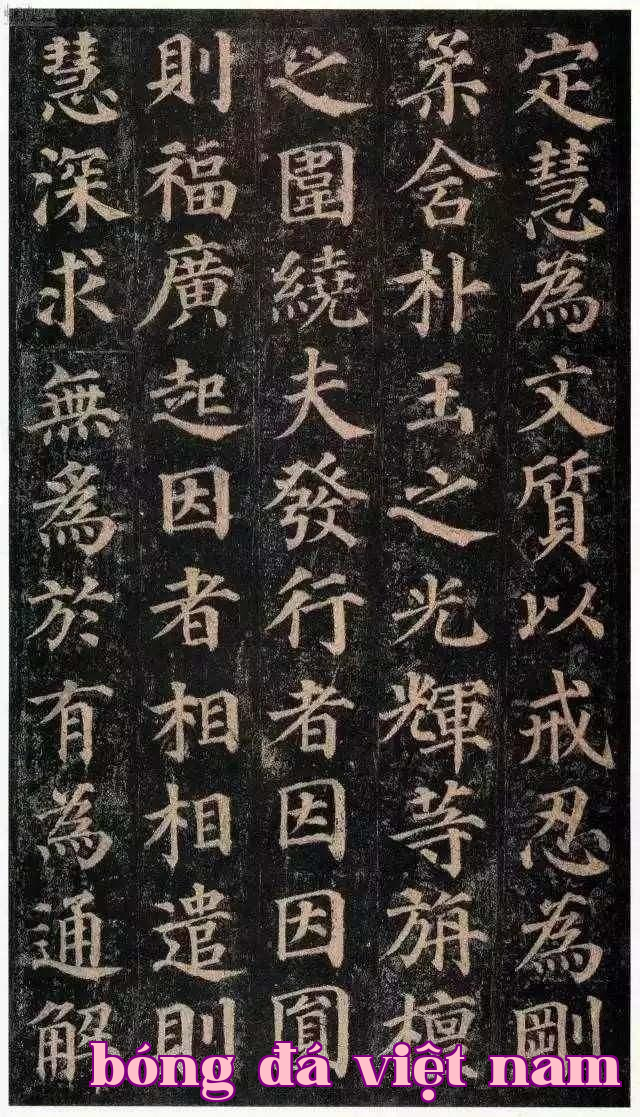 定慧為文質以戒忍為剛
柔含朴玉之光輝等旃檀
之圍繞夫發行者因因圓
則福廣起因者相相遣則
慧深求無為於有為通解
bóng đá việt nam